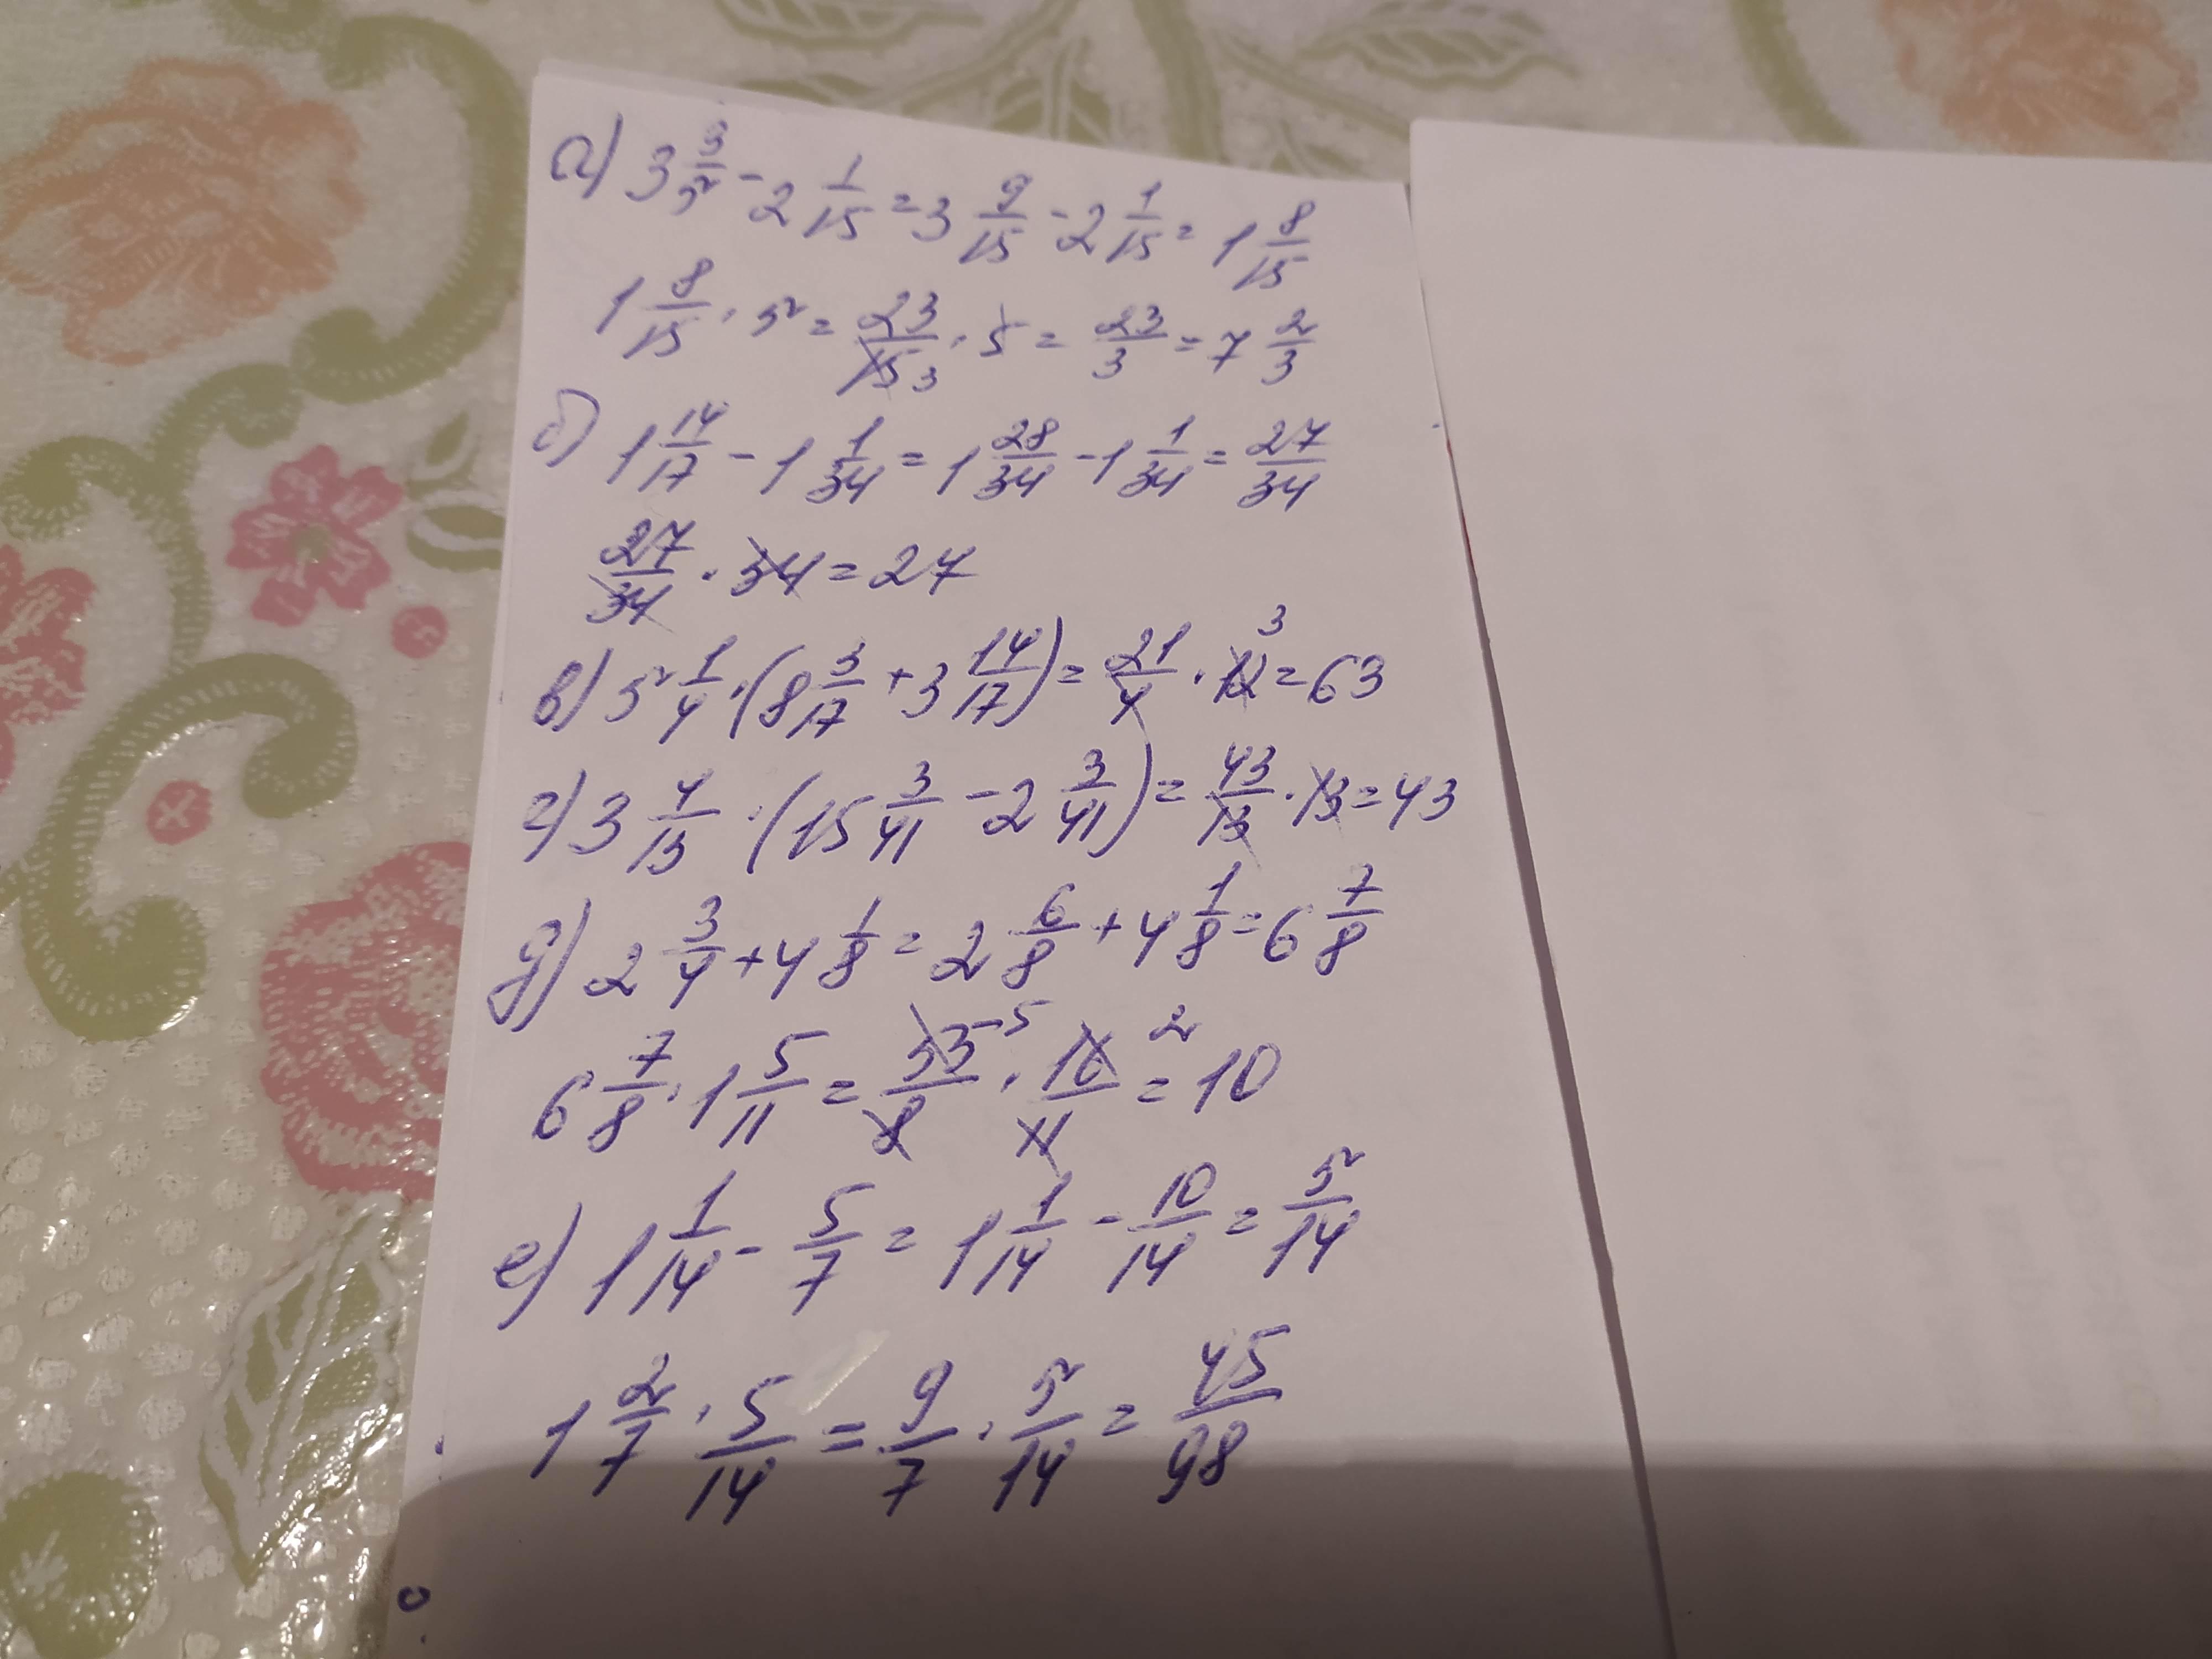 а) 3 3/5 - 2 1/15 = 3 9/15 - 2 1/15 = 1 8/15
1 8/15 · 5 = 23/15 3 · 5 = 23/3 = 7 2/3
б) 1 14/17 - 1 1/34 = 1 28/34 - 1 1/34 = 27/34
27/34 · 34 = 27
в) 5 1/4 · (8 3/17 + 3 14/17) = 21/4 · 12 3 = 63
г) 3 4/13 · (15 3/41 - 2 3/41) = 43/13 · 13 = 43
д) 2 3/4 + 4 1/8 = 2 6/8 + 4 1/8 = 6 7/8
6 7/8 · 1 5/11 = 55 5/8 · 16 2/11 = 10
е) 1 1/14 - 5/7 = 1 1/14 - 10/14 = 5/14
1 2/7 · 5/14 = 9/7 · 5/14 = 45/98